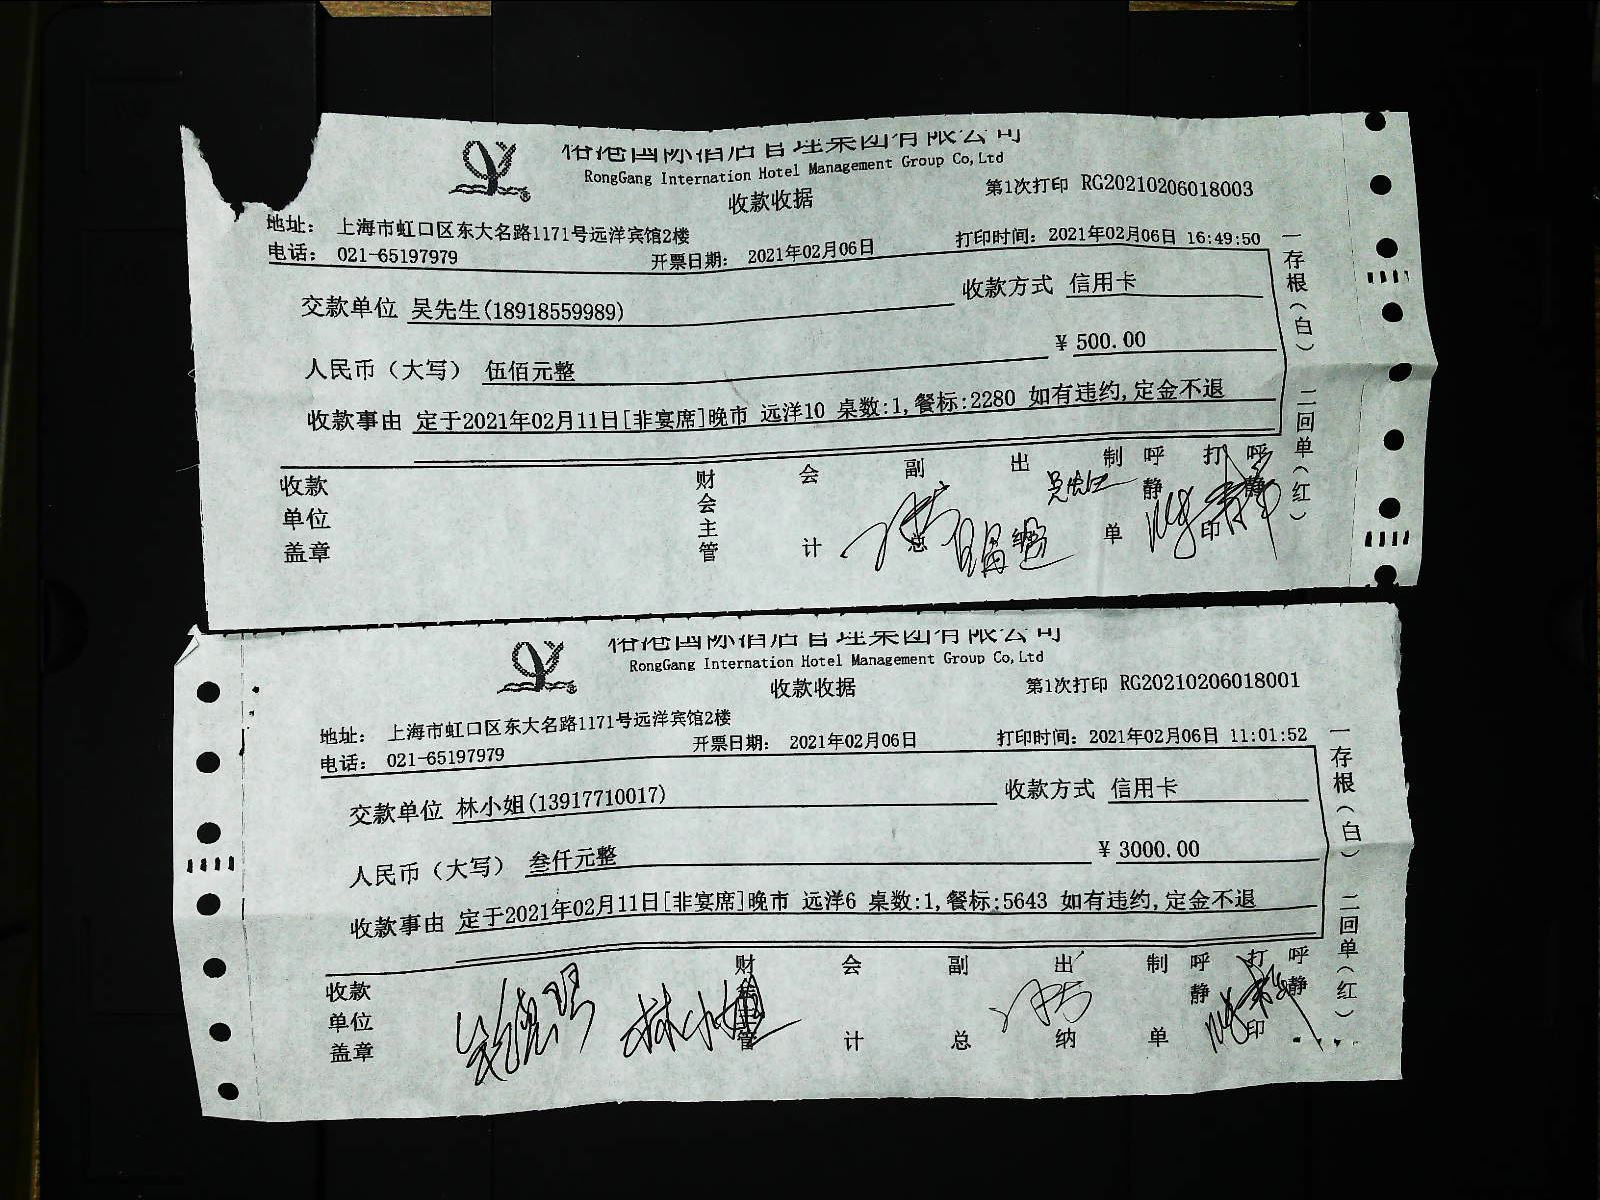 裕港国际酒店管理集团有限公司
RongGang Internation Hotel Management Group Co,Ltd
收款收据
第1次打印 RG20210206018003
地址： 上海市虹口区东大名路1171号远洋宾馆2楼
电话： 021-65197979 开票日期： 2021年02月06日 打印时间：2021年02月06日 16:49:50
交款单位 吴先生(18918559989) 收款方式 信用卡
人民币（大写） 伍佰元整 ¥ 500.00
收款事由 定于2021年02月11日[非宴席]晚市 远洋10 桌数:1,餐标:2280 如有违约,定金不退
收款单位盖章 财会主管 会计 副总 出纳 制单 呼静 打印 呼静
一存根（白） 二回单（红）
裕港国际酒店管理集团有限公司
RongGang Internation Hotel Management Group Co,Ltd
收款收据
第1次打印 RG20210206018001
地址： 上海市虹口区东大名路1171号远洋宾馆2楼
电话： 021-65197979 开票日期： 2021年02月06日 打印时间：2021年02月06日 11:01:52
交款单位 林小姐(13917710017) 收款方式 信用卡
人民币（大写） 叁仟元整 ¥ 3000.00
收款事由 定于2021年02月11日[非宴席]晚市 远洋6 桌数:1,餐标:5643 如有违约,定金不退
收款单位盖章 林小姐 财会主管 会计 副总 出纳 制单 呼静 打印 呼静
一存根（白） 二回单（红）